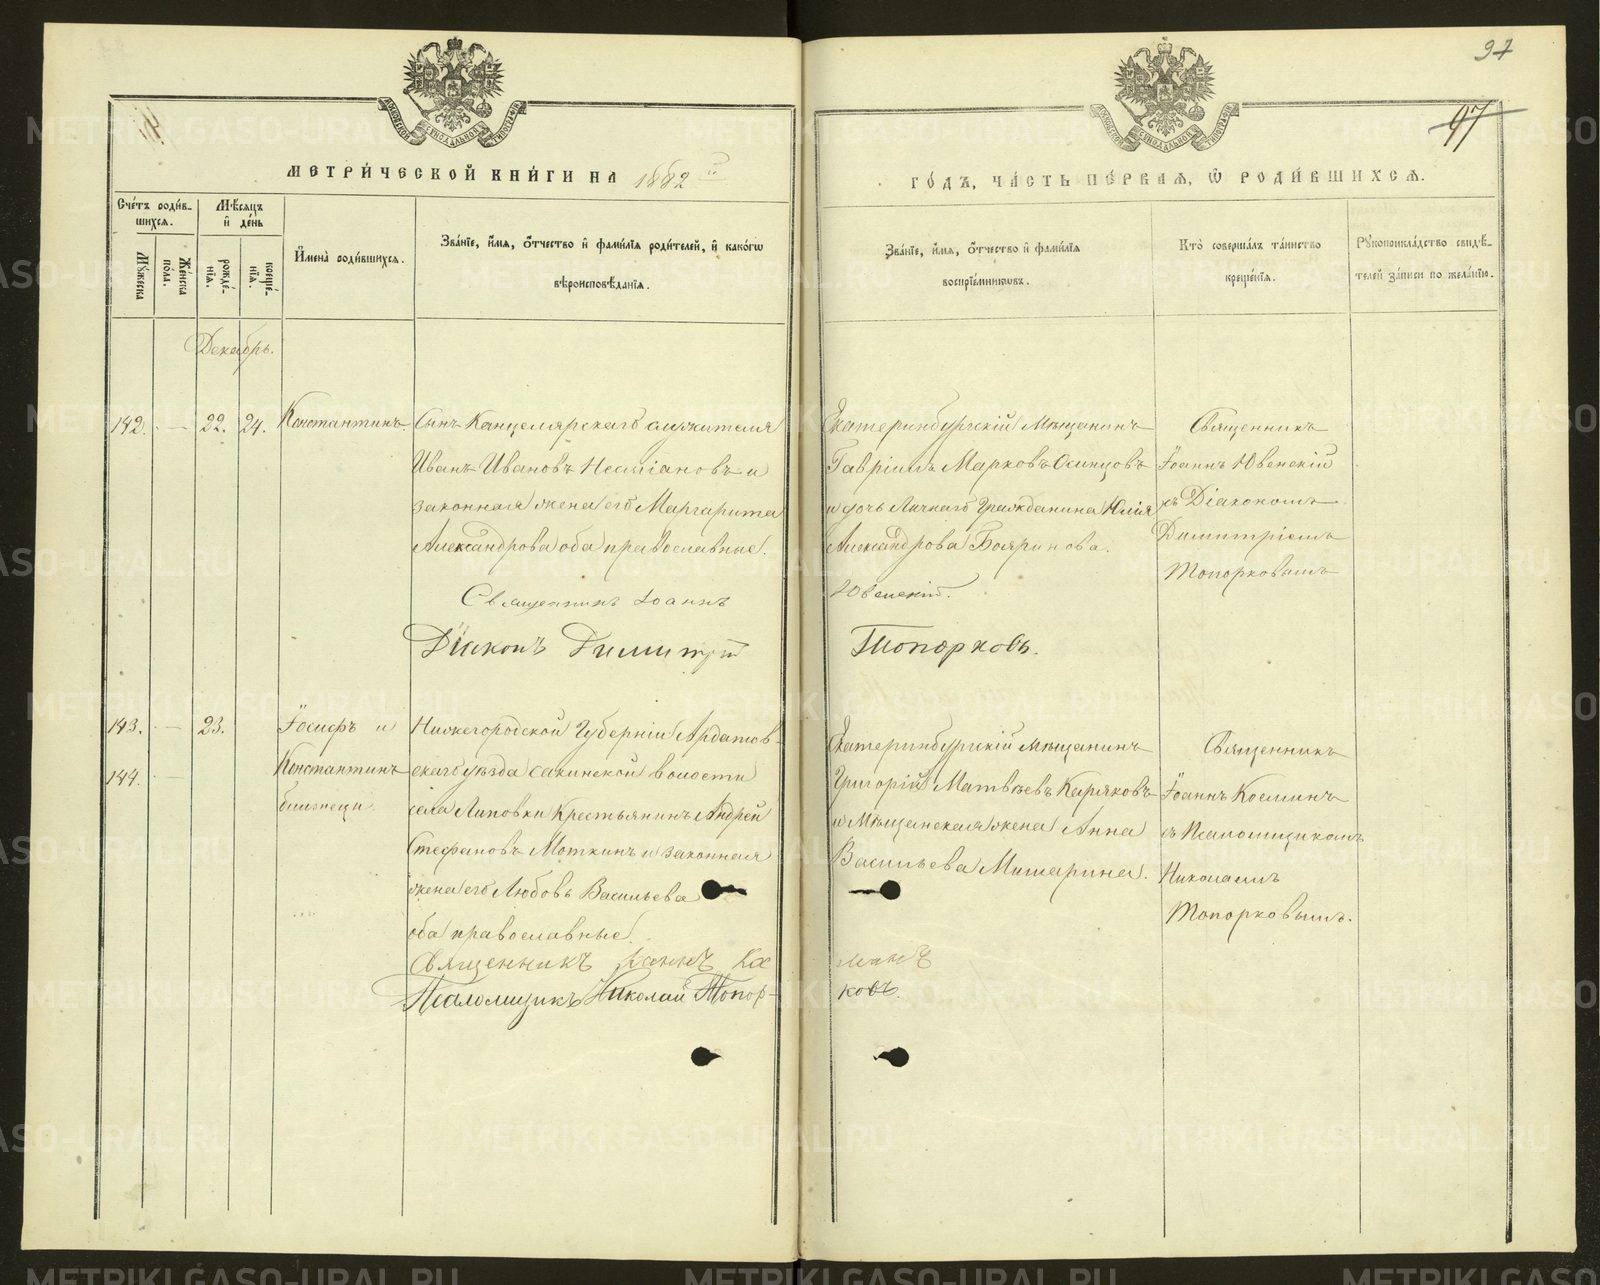 97
97
МЕТРИ́ЧЕСКОЙ КНИ́ГИ НА 1882 й
ГО́ДЪ, ЧА́СТЬ ПЕ́РВАЯ, Ѡ РОДИ́ВШИХСЯ.
Сче́тъ роди́в-
шихся.
Мѣ́сяцъ
и де́нь
Мꙋжеска
Же́нска
по́ла.
рожде́-
нїя.
креще́-
нїя.
Имена̀ роди́вшихся.
Зва́нїе, и́мя, о́тчество и фами́лїя роди́телей, и како́гѡ
вѣроисповѣ́данїя.
Зва́нїе, и́мя, о́тчество и фами́лїя
воспрїе́мникѡвъ.
Кто̀ соверша́лъ та́инство
креще́нїя.
Рꙋкоприкла́дство свидѣ́-
телей за́писи по жела́нїю.
Декабрь.
142. — 22. 24. Константинъ.
Сынъ Канцелярскаго служителя
Иванъ Ивановъ и
законная жена его Маргарита
Александрова оба православные.
Екатеринбургскій мѣщанинъ
Гавріилъ Марковъ Осинцовъ
и дочь Личнаго Гражданина Юлія
Александрова Бояринова.
Священникъ
Іоаннъ Ювенскій
съ Діакономъ
Димитріемъ
Топорковымъ
Священникъ Іоаннъ Ювенскій.
Діаконъ Димитрій Топорковъ.
143. — 23. Іосифъ и
144. — Константинъ
близнецы.
Нижегородской Губерніи Ардатов-
скаго уѣзда Сакинской волости
села Липовки Крестьянинъ Андрей
Стефановъ Моткинъ и законная
жена его Любовь Васильева
оба православные.
Екатеринбургскій мѣщанинъ
Григорій Матвѣевъ Каряковъ
и Мѣщанская жена Анна
Васильева Мишарина.
Священникъ
Іоаннъ Косминъ
съ Псаломщикомъ
Николаемъ
Топорковымъ.
Священникъ Іоаннъ Косминъ
Псаломщикъ Николай Топор-
ковъ.
METRIKI.GASO-URAL.RU